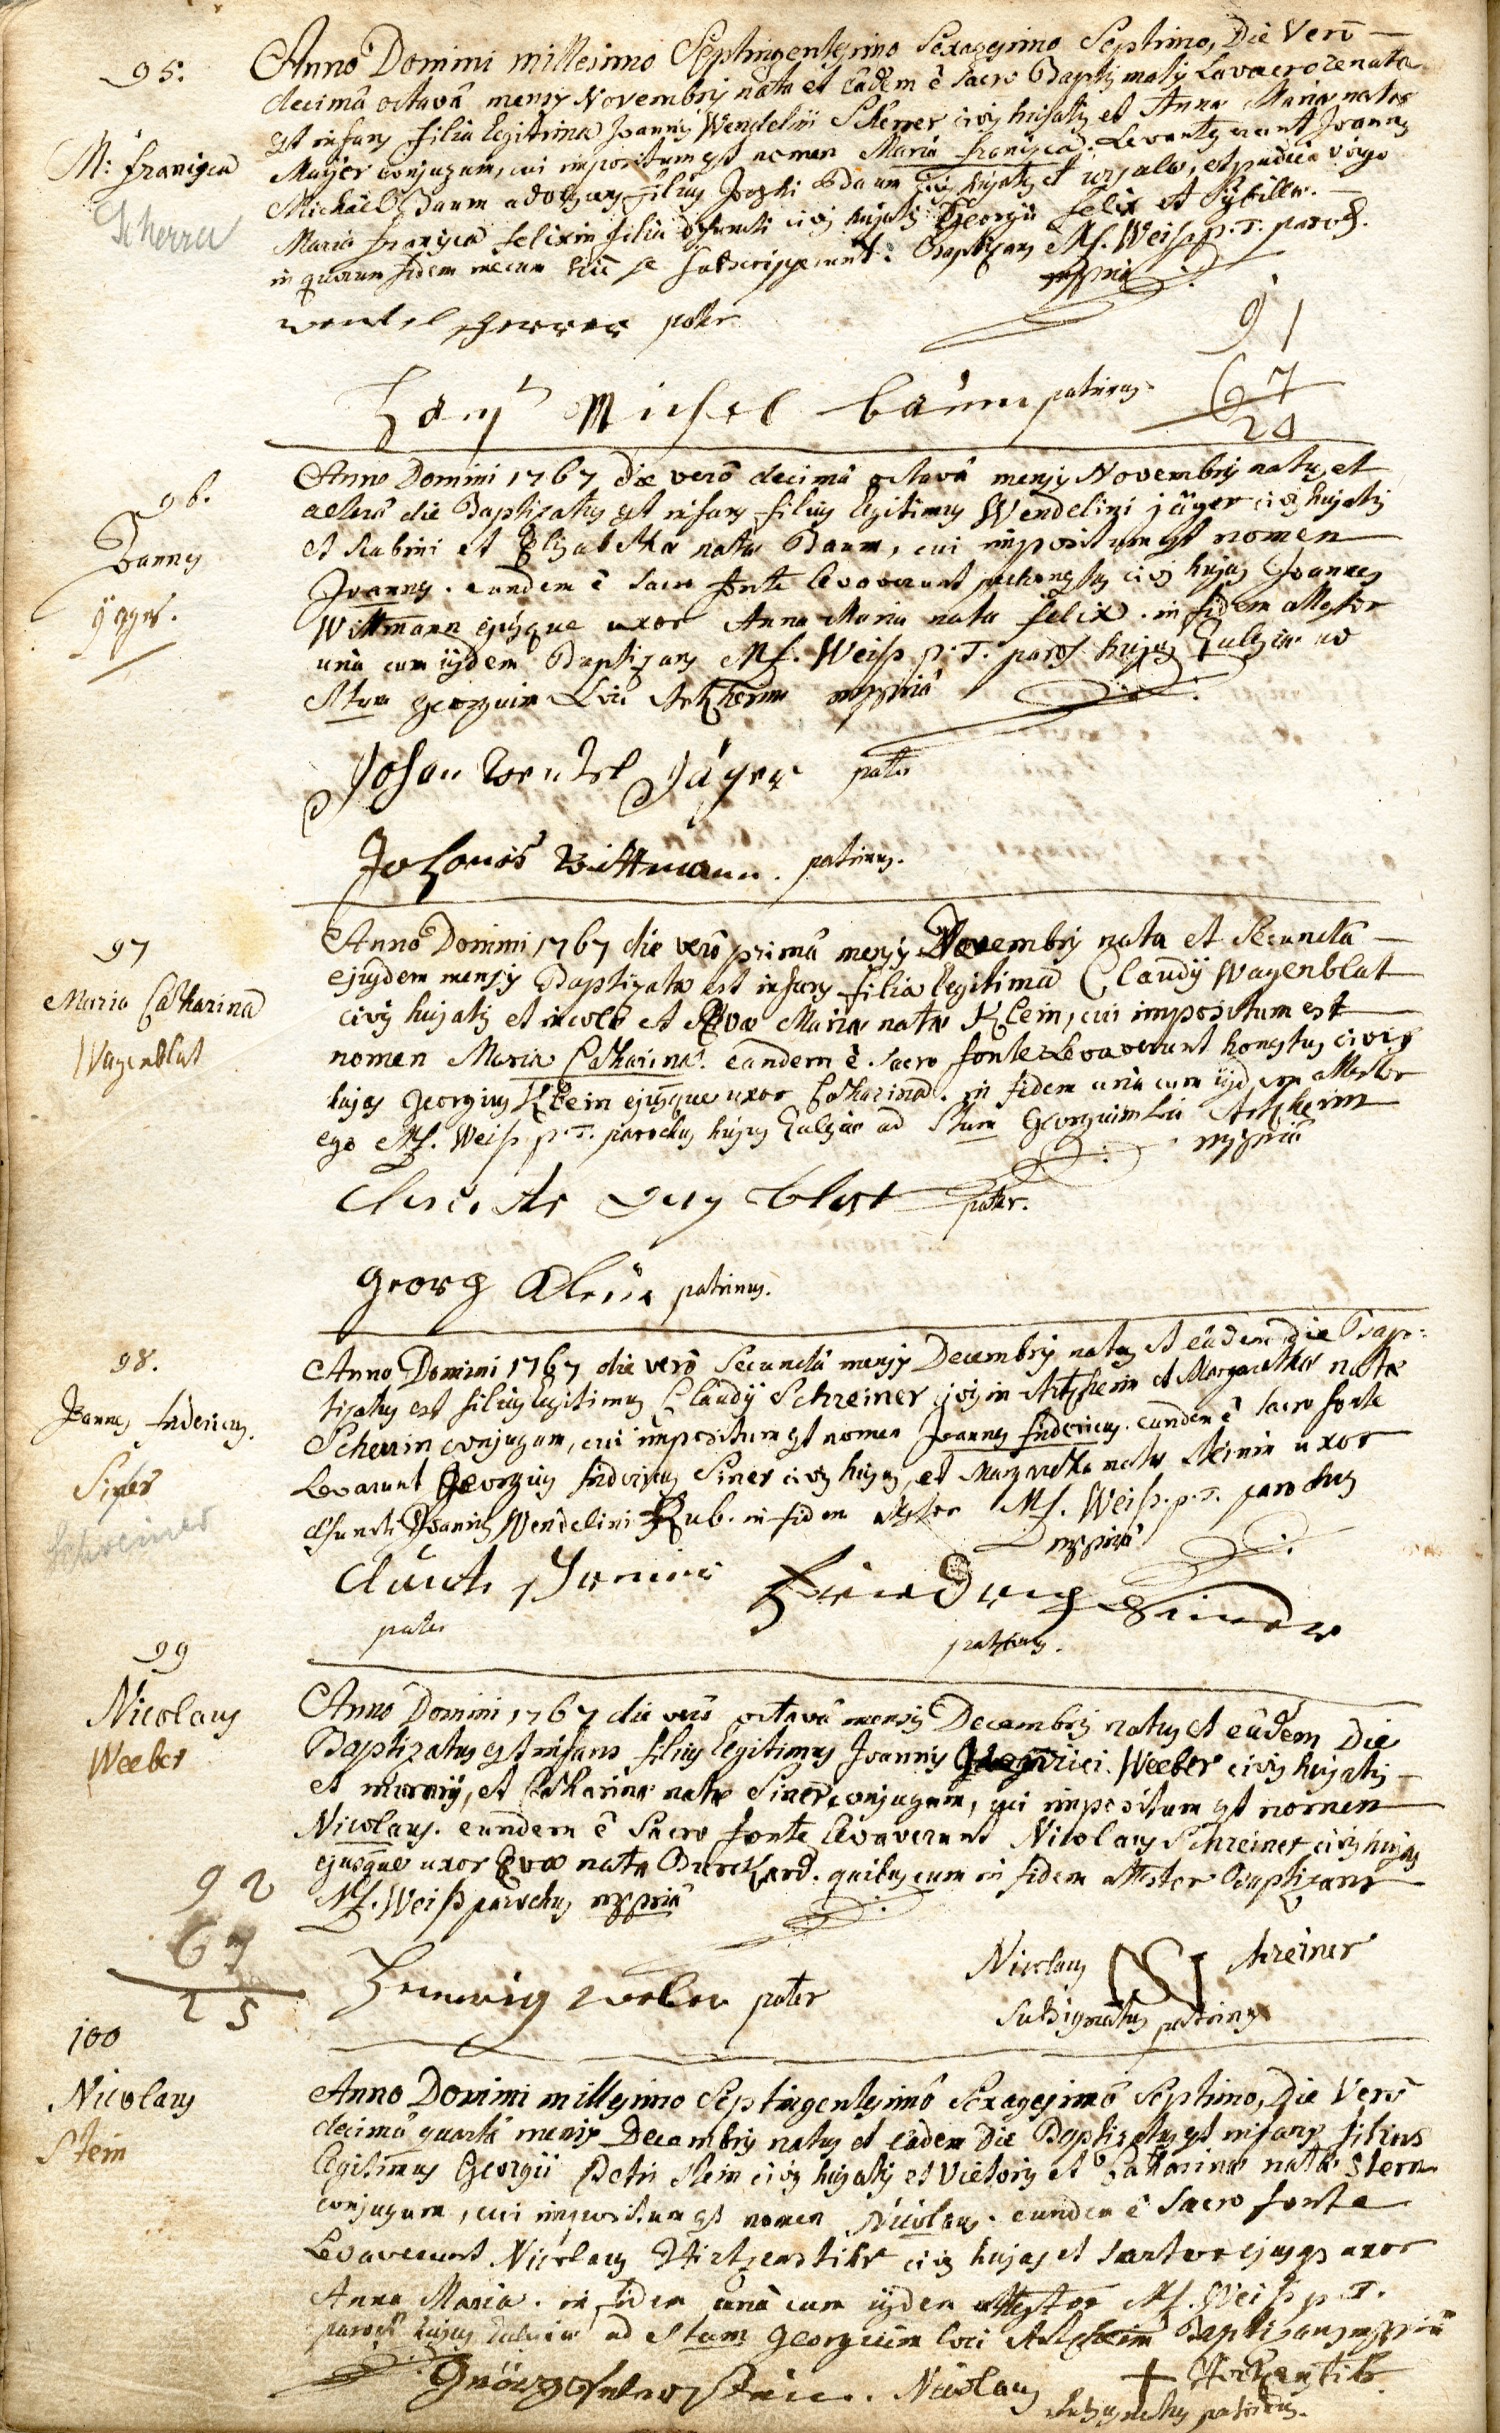 95.
M: francisca
Scherrer
Anno Domini millesimo Septingentesimo Sexagesimo Septimo, Die Verò
decimâ octavâ mensis Novembris nata et eâdem è Sacro Baptismatis Lavacro renata
est infans filia legitima Joannis Wendelini Scherrer civis hujatis et Anna Maria nata
Mayer conjugum, cui impositum est nomen Maria francisca. Levantes erant Joannes
Michaël Baum adolescens filius Josephi Baum civis hujatis et, et pudica virgo
Maria francisca felixin filia defuncti civis hujatis Georgii felix et Sybillæ.
in quorum fidem mecum hic se subscripserunt. Baptizans Mf. Weiß p. T. paroch.
mppria
wentel scherrer pater
Hans Michel baum patrinus
91
67
24
96.
Joannes
Jäger.
Anno Domini 1767 die verò decimâ octavâ mensis Novembris natus, et
altera die Baptizatus est infans filius legitimus Wendelini jäger civis hujatis
et Scabini et Elisabetha nata Baum, cui impositum est nomen
Joannes. eundem è Sacro fonte levaverunt honestus civis hujas Joannes
Wittmann ejusque uxor Anna Maria nata felix. in fidem attestor
una cum iisdem Baptizans Mf. Weiß p. T. paroch hujus Ecclesiæ ad
Stum georgium Loci Artzheim mppriâ
Johan Wentzel Jäger pater
Johanes Wittmann. patrinus.
97
Maria Catharina
Wagenblat
Anno Domini 1767 die verò primâ mensis Novembris nata et Secundâ
ejusdem mensis Baptizata est infans filia legitima Claudii Wagenblat
civis hujatis et incolæ et Eva Maria nata Klein, cui impositum est
nomen Maria Catharina. eandem è Sacro fonte Levaverunt honestus civis
hujas georgius Klein ejusque uxor Catharina. in fidem una cum iisdem attestor
ego Mf. Weiß p. T. parochus hujus Ecclesiæ ad Stum Georgium Loci Artzheim
mppriâ
blat pater.
georg Klein patrinus.
98.
Joannes fridericus.
Siner
Schreiner
Anno Domini 1767 die verò Secundâ mensis Decembris natus et eâdem die Bap-
tizatus est filius legitimus Claudii Schreiner civis in Artzheim et Margaretha nata
Scherrin conjugum, cui impositum est nomen Joannes fridericus. eundem è Sacro fonte
Levarunt Georgius fridericus Siner civis hujas, et Margaretha nata Steinin uxor
defuncti Joannis Wendelini Kub. in fidem attestor Mf. Weiß. p. T. parochus
mppriâ
pater
friedrich Siner
patrinus.
99
Nicolaus
Weeber
Anno Domini 1767 die verò octavâ mensis Decembris natus et eâdem Die
Baptizatus est infans filius legitimus Joannis Henrici Weeber civis hujatis
et murarii, et Catharina nata Siner conjugum, cui impositum est nomen
Nicolaus. eundem è Sacro fonte levaverunt Nicolaus Schreiner civis hujas
ejusque uxor Eva nata Burckhard. quibuscum in fidem attestor Baptizans
Mf. Weiß parochus mppriâ
92
67
25
weber pater
Nicolaus Schreiner
Subsignatus patrinus
100
Nicolaus
Stein
Anno Domini millesimo Septingentesimô Sexagesimô Septimo, Die Verò
decimâ quartâ mensis Decembris natus et eâdem Die Baptizatus est infans filius
legitimus Georgii Petri Stein civis hujatis et Vietoris et Catharina nata Stern
conjugum, cui impositum est nomen Nicolaus. eundem è Sacro fonte
Levaverunt Nicolaus civis hujas et Sartor ejusque uxor
Anna Maria. in fidem unâ cum iisdem attestor Mf. Weiß p. T.
paroch hujus Ecclesiæ ad Stum georgium loci Artzheim Baptizans mppriâ
Stein. Nicolaus +
patrinus.